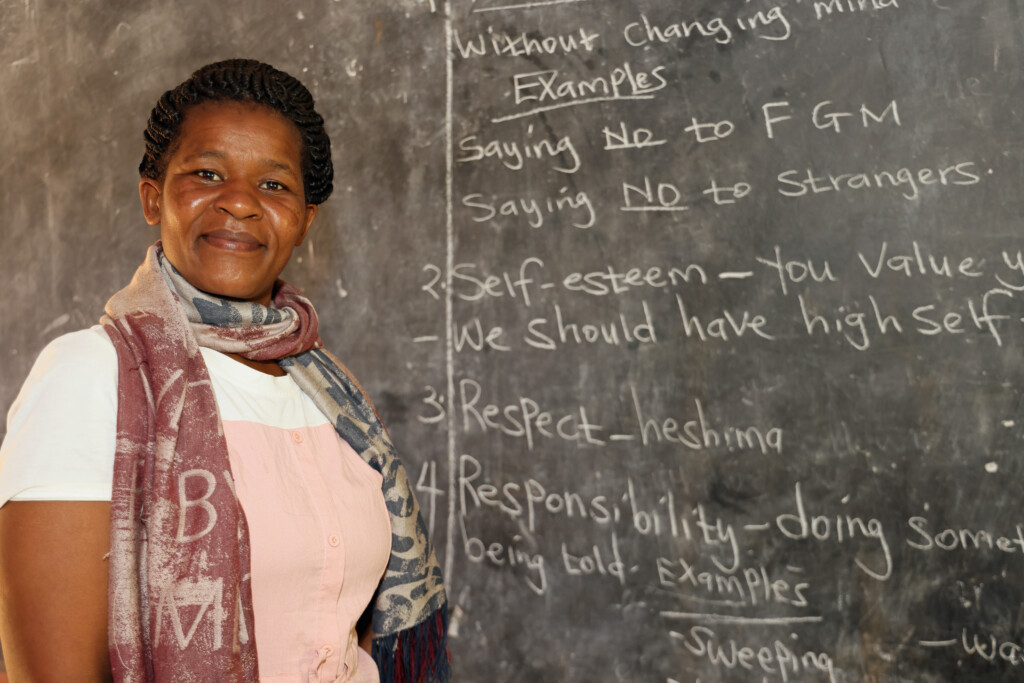 Without changing mind
Examples
Saying No to FGM
Saying NO to Strangers.
2. Self-esteem - You value
- We should have high self-
3. Respect - heshima
4 Responsibility - doing
being told. Examples
Sweeping
B